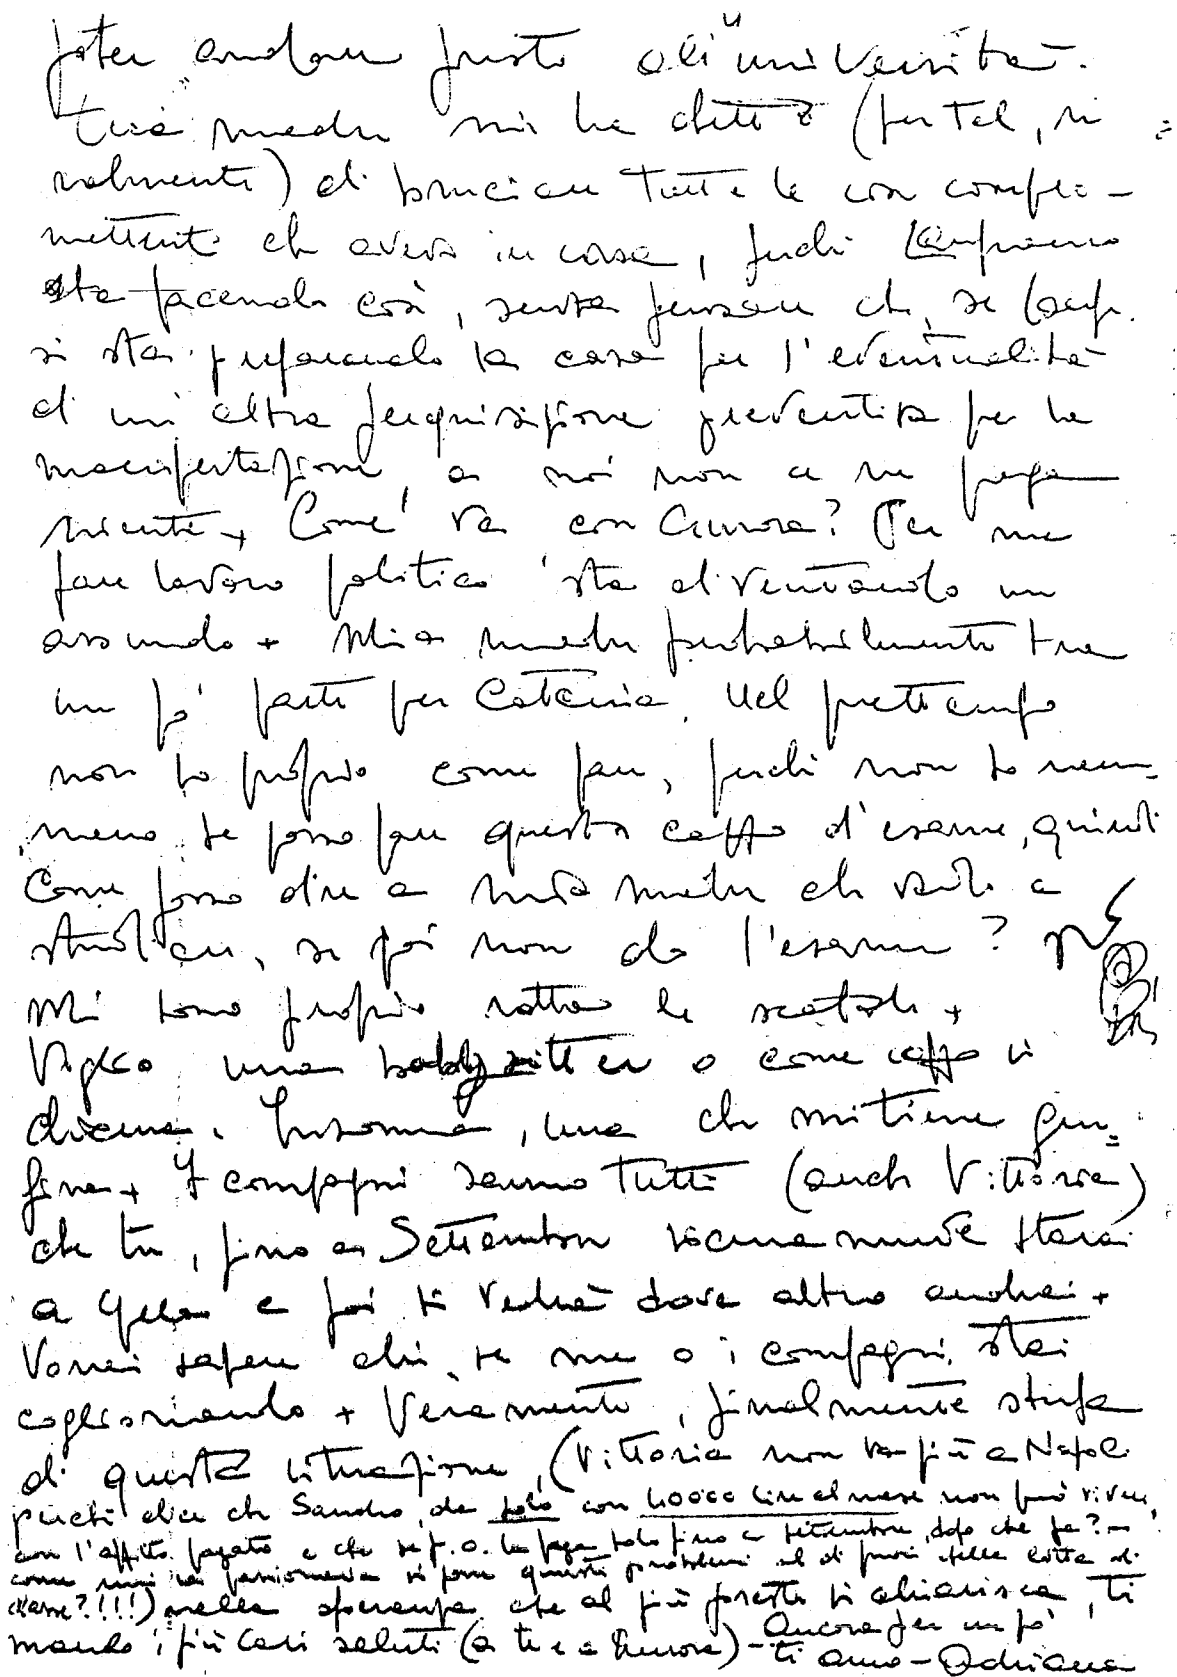 poter andare presto all'università.
tua madre mi ha detto (per tel, ri=
nalmente) di bruciare tutte le cose compro-
mettenti che avevo in casa, perché Lanfranco
sta facendo così, senza pensare che, se Lanf.
si sta preparando la casa per l'eventualità
di un'altra perquisizione preventiva per la
manifestazione, a noi non ce ne frega
niente + Come va con Aurora? Per me
fare lavoro politico sta diventando un
assurdo + Mia madre probabilmente tra
un po' parte per Catania. Nel frattempo
non so proprio come fare, perché non so nem-
meno se posso fare questo cazzo d'esame, quindi
Come posso dire a mia madre che vado a
studiare, se poi non do l'esame?
Mi sono proprio rotta le scatole +
Voglio una babysitter o come cazzo si
chiama. Insomma, una che mi tiene
+ I compagni sanno tutti (anche Vittoria)
che tu, fino a Settembre sicuramente starai
a Gela e poi si vedrà dove altro andrai +
Vorrei sapere chi, se me o i compagni, stai
coglionando + Veramente, finalmente stufa
di questa situazione, (Vittoria non va più a Napoli
perché dice che Sandro, da solo con 40000 lire al mese non può vivere,
con l'affitto pagato e che se p.o. la paga solo fino a settembre, dopo che fa? -
come mai si pone questi problemi al di fuori della lotta di
classe?!!!) nella speranza che al più presto si chiarisca, ti
mando i più cari saluti (a te e a Aurora) - Ancora per un po'
ti amo - Adriana